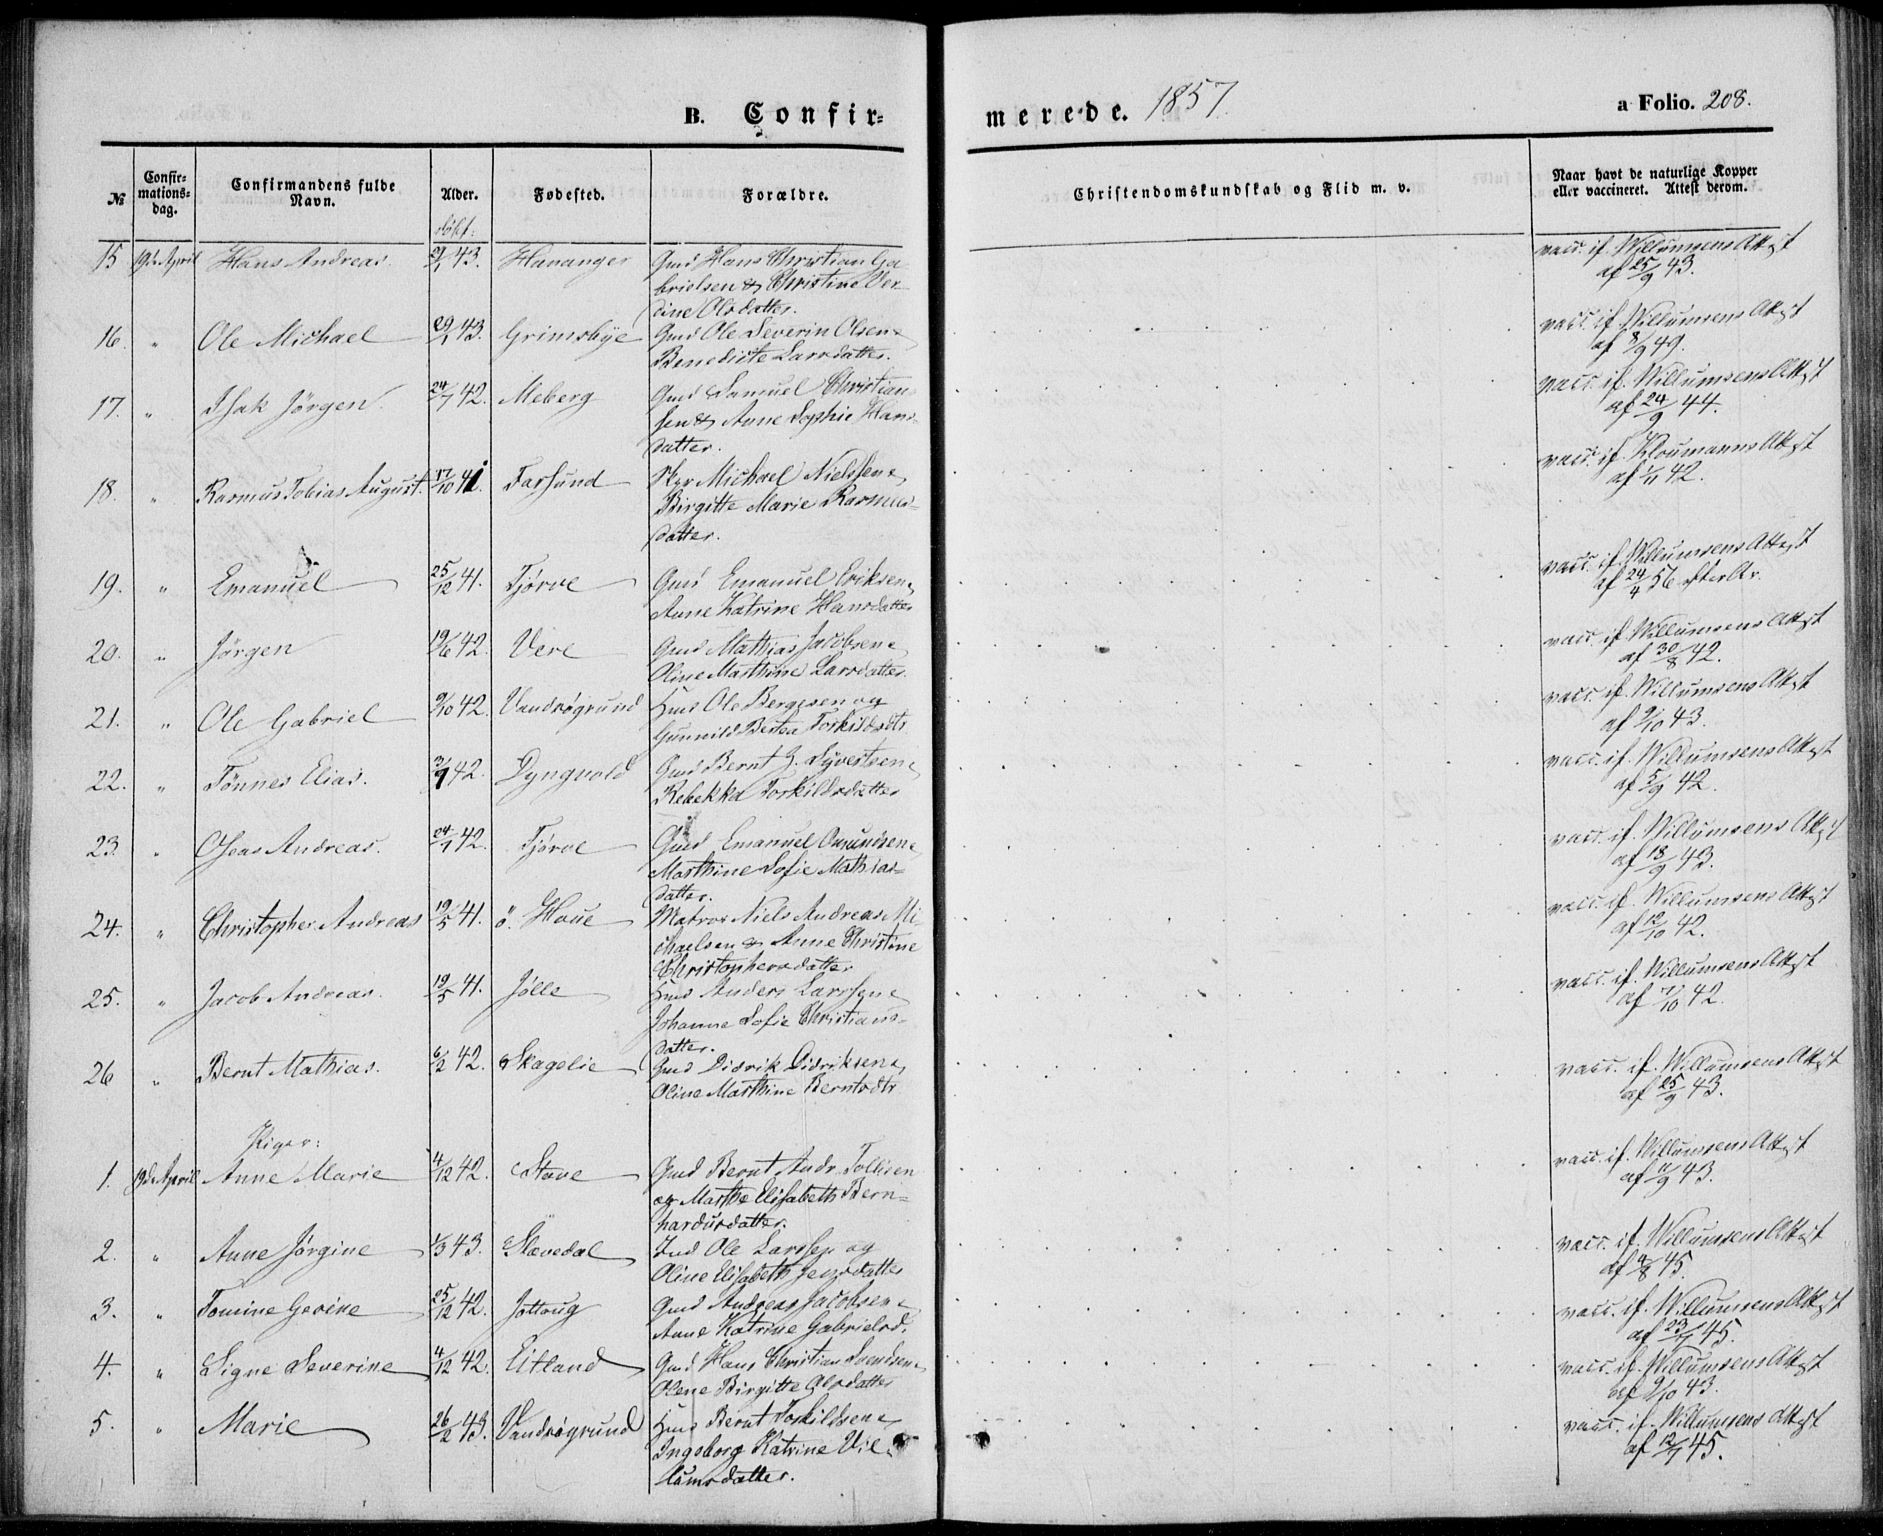 B. Confir=
merede. 1857.
a Folio. 208.
№
Confir=
mations=
dag.
Confirmandens fulde
Navn.
Alder.
Fødested.
Forældre.
Christendomskundskab og Flid m. v.
Naar havt de naturlige Kopper
eller vaccineret. Attest derom.
døbt:
15 19de April Hans Andreas 43. Hananger Gmd Hans Christian Ga
brielsen & Christine Ver
dine Olsdatter.
vacc. if. Willumsens Attest
af 25/9 43.
16. " Ole Michael 29/1 43. Grimsbye Gmd Ole Severin Olsen &
Benedicte Larsdatter.
vacc. if. Willumsens Attest
af 8/9 49.
17. " Isak Jörgen 24/7 42. Meberg Gmd Samuel Christian
sen & Anne Sophie Hans
datter.
vacc. if. Willumsens Attest
af 24/9 44.
18. " Rasmus Tobias August. 17/10 41. Farsund Skpr Michael Nielssen &
Birgitte Marie Rasmus=
datter.
vacc. if. Kloumanns Attest
af 1/11 42.
19. " Emanuel 25/12 41. Tjörve Gmd Emanuel Eriksen &
Anne Katrine Hansdatter
vacc. if. Willumsens Attest
af 24/4 56
20. " Jörgen 19/6 42. Vere Gmd Mathias Jacobsen &
Oline Marthine Larsdatter
vacc. if. Willumsens Attest
af 30/8 42.
21. " Ole Gabriel 9/10 42. Vandrøgrund Hmd Ole Bergesen og
Gunnild Bertea Torkildsdtr
vacc. if. Willumsens Attest
af 9/10 43.
22. " Tönnes Elias. 3/9 42. Dyngvold Gmd Bernt G. Syvertsen &
Rebekka Torkildsdatter
vacc. if. Willumsens Attest
af 5/9 42
23. " Oseas Andreas. 24/7 42. Tjörve Gmd Emanuel Omundsen &
Marthine Sofie Mathias=
datter.
vacc. if. Willumsens Attest
af 18/9 43.
24. " Christopher Andreas 19/5 41. ö. Houe Matros Niels Andreas Mi
chaelsen & Anne Christine
Christophersdatter
vacc. if. Willumsens Attest
af 12/10 42.
25. " Jacob Andreas. 19/5 41. Jölle Hmd Anders Larssen &
Johanne Sofie Christians=
datter.
vacc. if. Willumsens Attest
af 7/10 42.
26 " Bernt Mathias. 6/2 42. Skagelie Gmd Didrik Didriksen &
Oline Marthine Berntsdtr
vacc. if. Willumsens Attest
af 25/9 43.
Piger:
1. 19de April Anne Marie 4/12 42. Stave Gmd Bernt Andr. Tollisen
og Marthe Elisabeth Bern=
hardusdatter.
vacc. if. Willumsens Attest
af 11/9 43.
2. " Anne Jörgine 1/3 43. Slævedal Ind Ole Larssen og
Oline Elisabeth Jensdatter
vacc. if. Willumsens Attest
af 4/8 45.
3. " Tomine Gevine 25/12 42. Jöttoug Gmd Andreas Jacobsen &
Anne Katrine Gabrielsd.
vacc. if. Willumsens Attest
af 23/7 45.
4. " Signe Severine 4/12 42. Eitland Gmd Hans Christian Svendsen &
Olene Birgitte Olsdatter
vacc. if. Willumsens Attest
af 9/10 43.
5. " Marie 26/2 43. Vandrøgrund Hmd Bernt Torkildsen &
Ingeborg Katrine Vil=
lumsdatter.
vacc. if. Willumsens Attest
af 12/7 45.